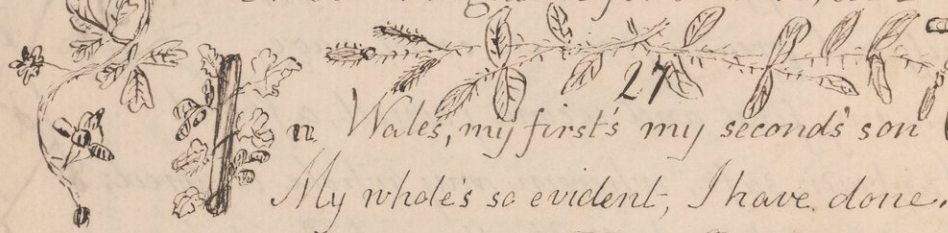 27
In Wales, my first's my second's son
My whole's so evident, I have done.